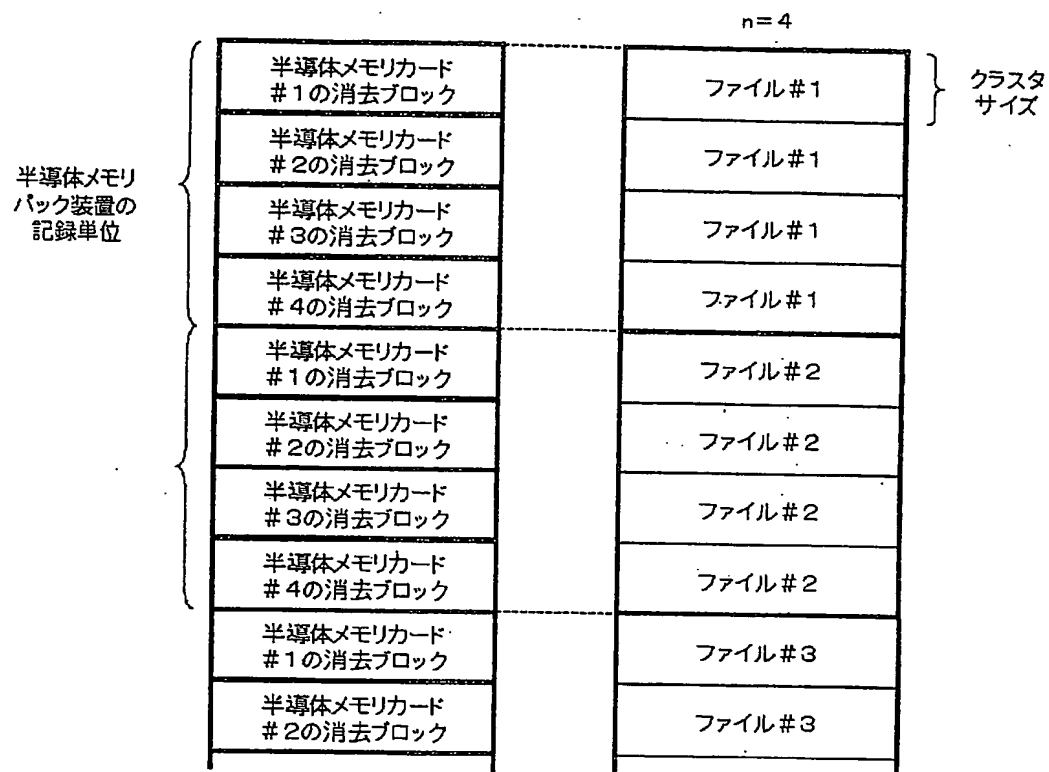 n=4
半導体メモリカード
#1の消去ブロック
半導体メモリカード
#2の消去ブロック
半導体メモリカード
#3の消去ブロック
半導体メモリカード
#4の消去ブロック
半導体メモリカード
#1の消去ブロック
半導体メモリカード
#2の消去ブロック
半導体メモリカード
#3の消去ブロック
半導体メモリカード
#4の消去ブロック
半導体メモリカード
#1の消去ブロック
半導体メモリカード
#2の消去ブロック
半導体メモリ
パック装置の
記録単位
ファイル#1
ファイル#1
ファイル#1
ファイル#1
ファイル#2
ファイル#2
ファイル#2
ファイル#2
ファイル#3
ファイル#3
クラスタ
サイズ